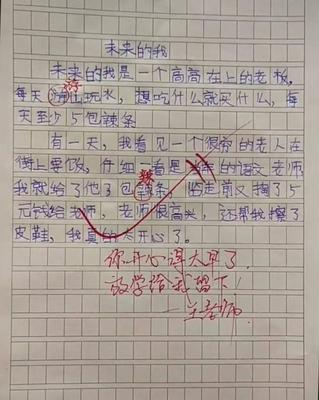 未来的我
未来的我是一个高高在上的老板,
每天游山玩水,想吃什么就买什么,每
天至少5包辣条
有一天,我看见一个很穷的老人在
街上要饭,仔细一看是的语文老师
我就给了他3包辣条,临走前又掏了5
元钱给老师,老师很高兴,还帮我擦了
皮鞋,我真的太开心了。
游
辣
你开心得太早了,
放学给我留下!
王老师